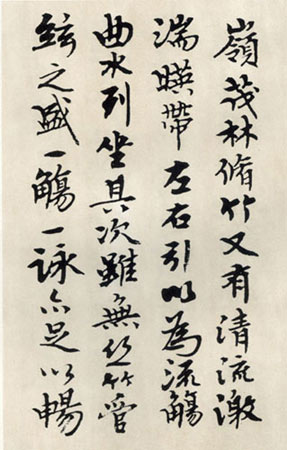 嶺茂林脩竹又有清流激
湍暎帶左右引以為流觴
曲水列坐其次雖無絲竹管
絃之盛一觴一詠亦足以暢